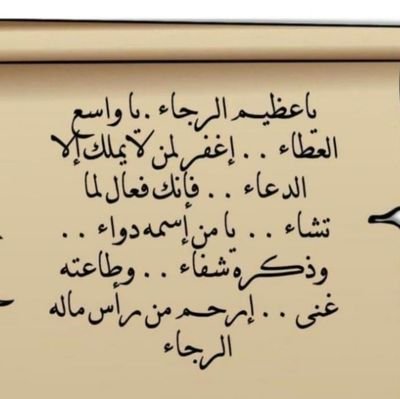 ياعظيم الرجاء .يا واسع
العطاء . . إغفر لمن لايملك إلا
الدعاء . . فإنك فعال لما
تشاء . . يا من إسمه دواء . .
وذكرة شفاء . . وطاعته
غنى . . إرحم من رأس ماله
الرجاء